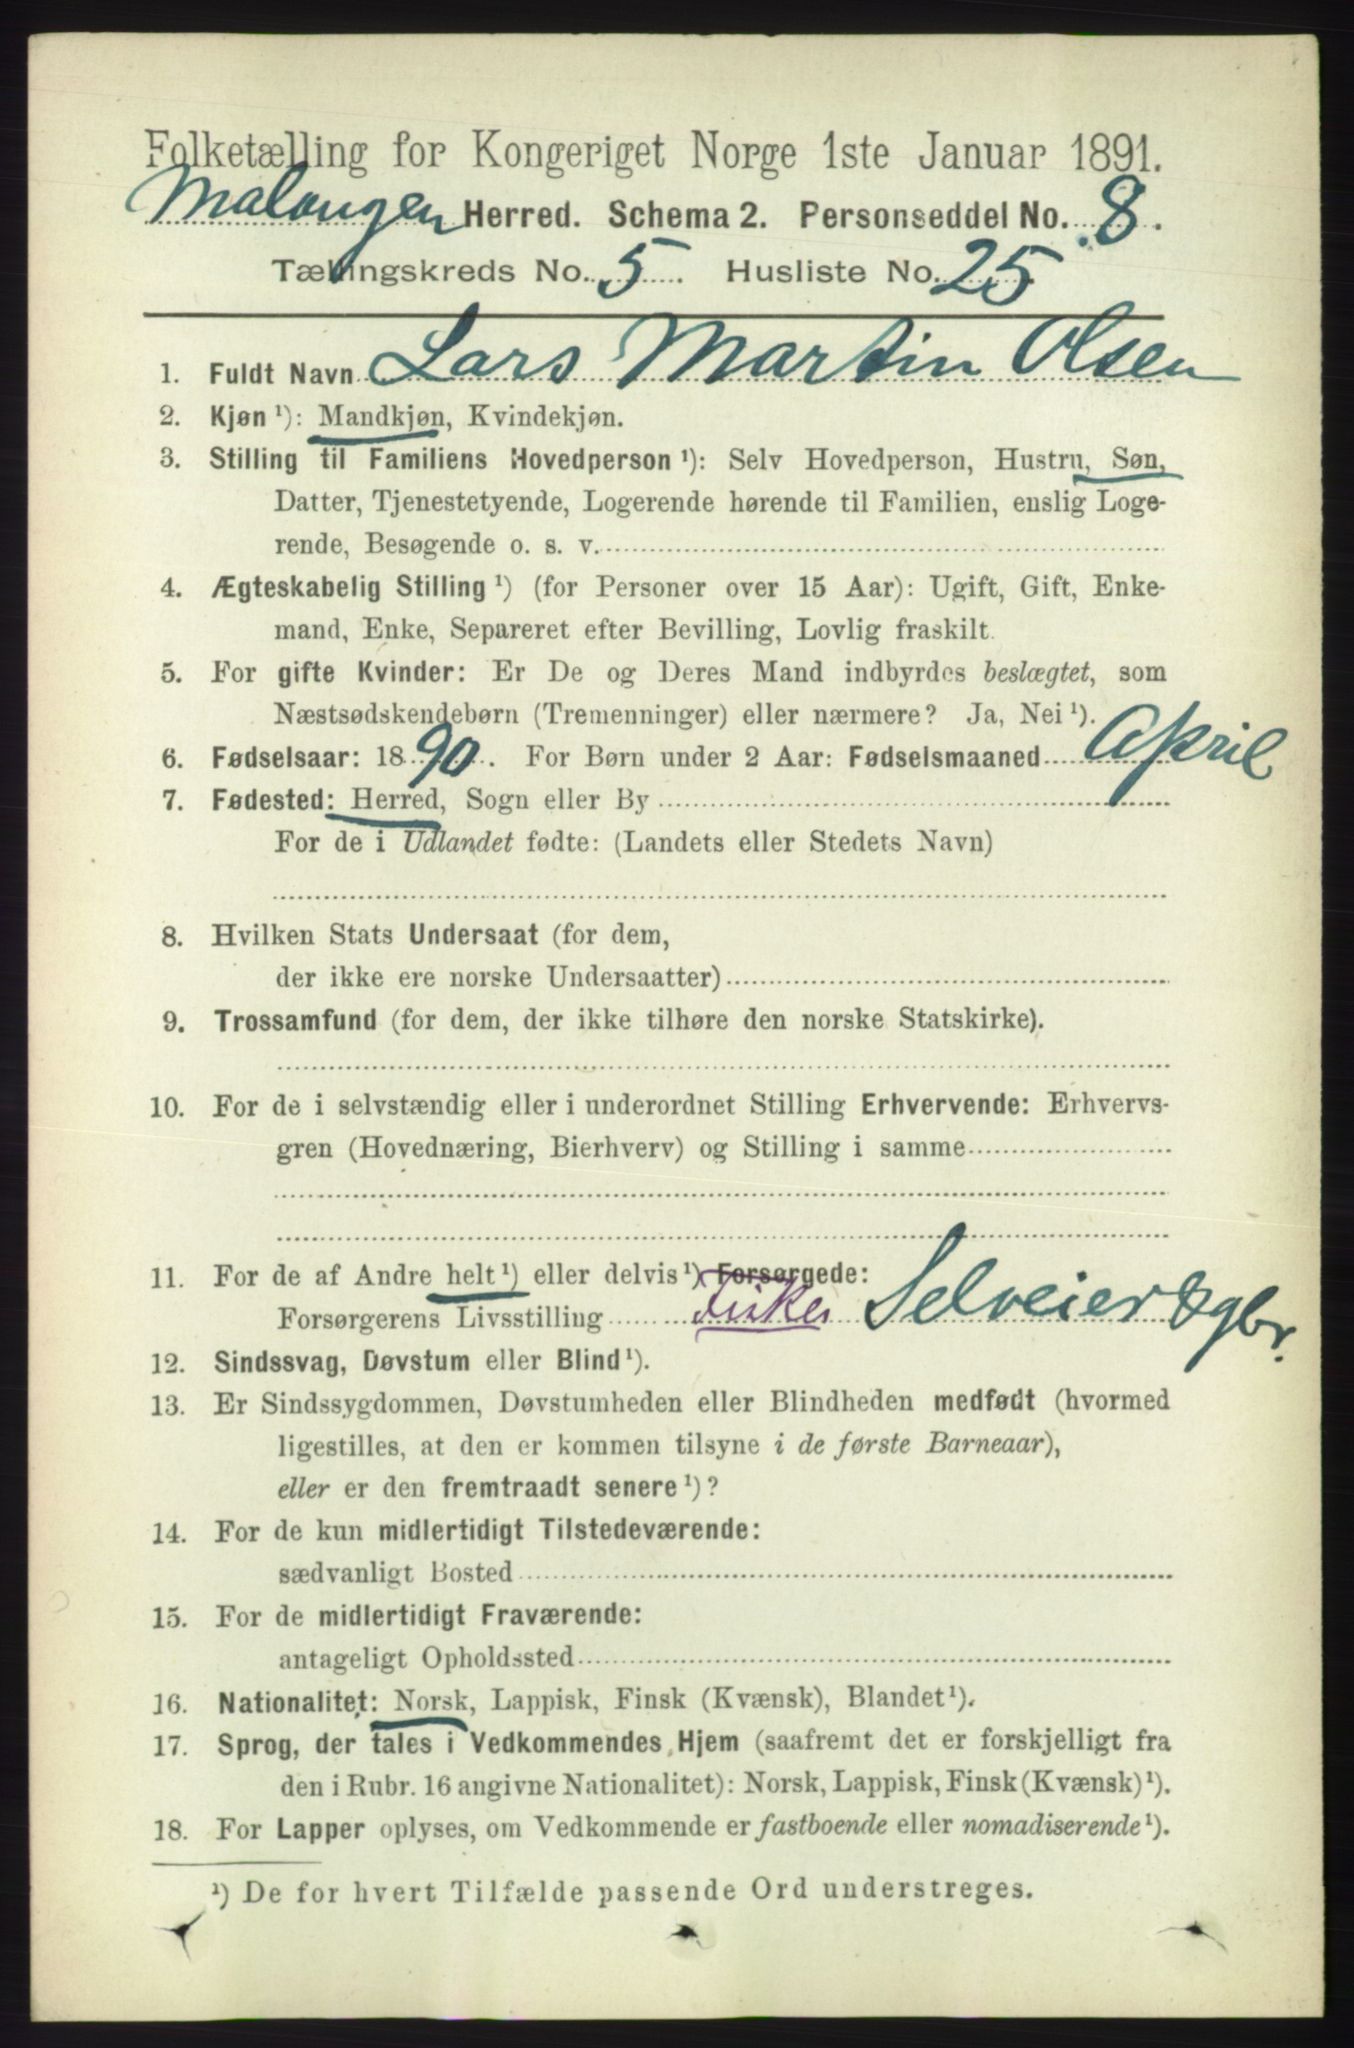 Folketælling for Kongeriget Norge 1ste Januar 1891.
Malangen Herred. Schema 2. Personseddel No. 8.
Tællingskreds No. 5. Husliste No. 25
1. Fuldt Navn Lars Martin Olsen
2. Kjøn ¹): Mandkjøn, Kvindekjøn.
3. Stilling til Familiens Hovedperson ¹): Selv Hovedperson, Hustru, Søn,
Datter, Tjenestetyende, Logerende hørende til Familien, enslig Loge-
rende, Besøgende o. s. v.
4. Ægteskabelig Stilling ¹) (for Personer over 15 Aar): Ugift, Gift, Enke-
mand, Enke, Separeret efter Bevilling, Lovlig fraskilt.
5. For gifte Kvinder: Er De og Deres Mand indbyrdes beslægtet, som
Næstsødskendebørn (Tremenninger) eller nærmere? Ja, Nei ¹).
6. Fødselsaar: 1890. For Børn under 2 Aar: Fødselsmaaned April
7. Fødested: Herred, Sogn eller By
For de i Udlandet fødte: (Landets eller Stedets Navn)
8. Hvilken Stats Undersaat (for dem,
der ikke ere norske Undersaatter)
9. Trossamfund (for dem, der ikke tilhøre den norske Statskirke).
10. For de i selvstændig eller i underordnet Stilling Erhvervende: Erhvervs-
gren (Hovednæring, Bierhverv) og Stilling i samme
11. For de af Andre helt ¹) eller delvis ¹) Forsørgede:
Forsørgerens Livsstilling Fisker Selveier &gbr.
12. Sindssvag, Døvstum eller Blind ¹).
13. Er Sindssygdommen, Døvstumheden eller Blindheden medfødt (hvormed
ligestilles, at den er kommen tilsyne i de første Barneaar),
eller er den fremtraadt senere ¹)?
14. For de kun midlertidigt Tilstedeværende:
sædvanligt Bosted
15. For de midlertidigt Fraværende:
antageligt Opholdssted
16. Nationalitet: Norsk, Lappisk, Finsk (Kvænsk), Blandet ¹).
17. Sprog, der tales i Vedkommendes Hjem (saafremt det er forskjelligt fra
den i Rubr. 16 angivne Nationalitet): Norsk, Lappisk, Finsk (Kvænsk) ¹).
18. For Lapper oplyses, om Vedkommende er fastboende eller nomadiserende ¹).
¹) De for hvert Tilfælde passende Ord understreges.